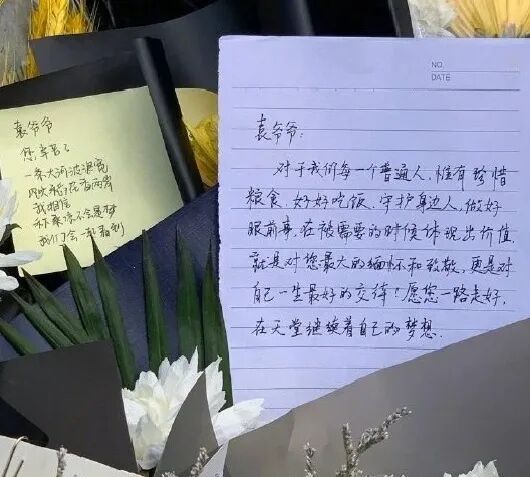 袁爷爷
您辛苦了
一条大河波浪宽
风吹稻花香两岸
我相信
禾下乘凉不会是梦
我们会一起看到
NO.
DATE
袁爷爷:
对于我们每一个普通人,惟有珍惜
粮食、好好吃饭、守护身边人,做好
眼前事,在被需要的时候体现出价值,
就是对您最大的缅怀和致敬,更是对
自己一生最好的交待!愿您一路走好,
在天堂继续着自己的梦想.